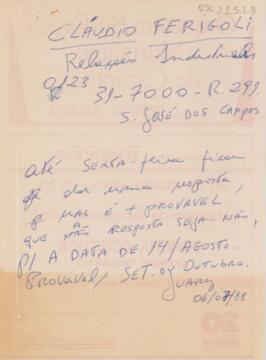 CLÁUDIO FERIGOLI
Relações Industriais
0123
31-7000-R.299
S. JOSÉ DOS CAMPOS.
até SEXTA-feira ficou
de dar uma resposta,
MAS É + PROVAVEL
QUE A RESPOSTA SEJA NÃO,
P/ A DATA DE 14/AGOSTO.
PROVAVEL/ SET. OU OUTUBRO.
Juarez
06/07/88
20